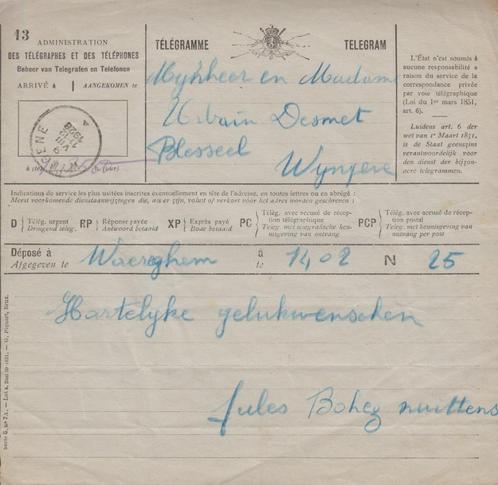 13
ADMINISTRATION
DES TÉLÉGRAPHES ET DES TÉLÉPHONES
Beheer van Telegrafen en Telefonen
ARRIVÉ à | AANGEKOMEN te
TÉLÉGRAMME TELEGRAM
Mynheer en Madame
Urbain Desmet
Blesseel
Wyngene
L'État n'est soumis à
aucune responsabilité à
raison du service de la
correspondance privée
par voie télégraphique
(Loi du 1er mars 1851,
art. 6).
Luidens art. 6 der
wet van 1e Maart 1851,
is de Staat geenszins
verantwoordelijk voor
den dienst der bijzon-
dere telegrammen.
Indications de service les plus usitées inscrites éventuellement en tête de l'adresse, en toutes lettres ou en abrégé :
Meest voorkomende dienstaanwijzingen die, als er zijn, voluit of verkort vóór het adres worden geschreven :
D Télég. urgent
Dringend teleg.
RP Réponse payée
Antwoord betaald
XP Exprès payé
Bode betaald
PC Télég. avec accusé de récep-
tion télégraphique
Teleg. met telegrafische ken-
nisgeving van ontvangst
PCP Télég. avec accusé de récep-
tion postal
Teleg. met kennisgeving van
ontvangst per post
Déposé à Waereghem à 1402 N 25
Afgegeven te te
Hartelyke gelukwenschen
Jules Bohez nuittens